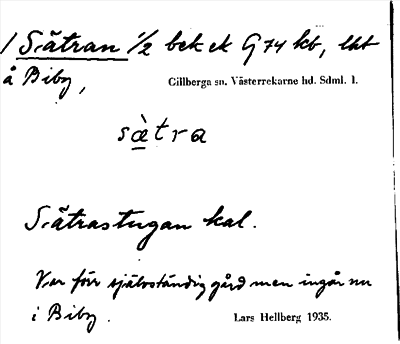 / Sätran 1/2 bek ek G 74 kb, lht
å Biby,
Gillberga sn. Västerrekarne hd. Sdml. l.
sàtra
Sätrastugan kal.
Var förr självständig gård men ingår nu
i Biby.
Lars Hellberg 1935.